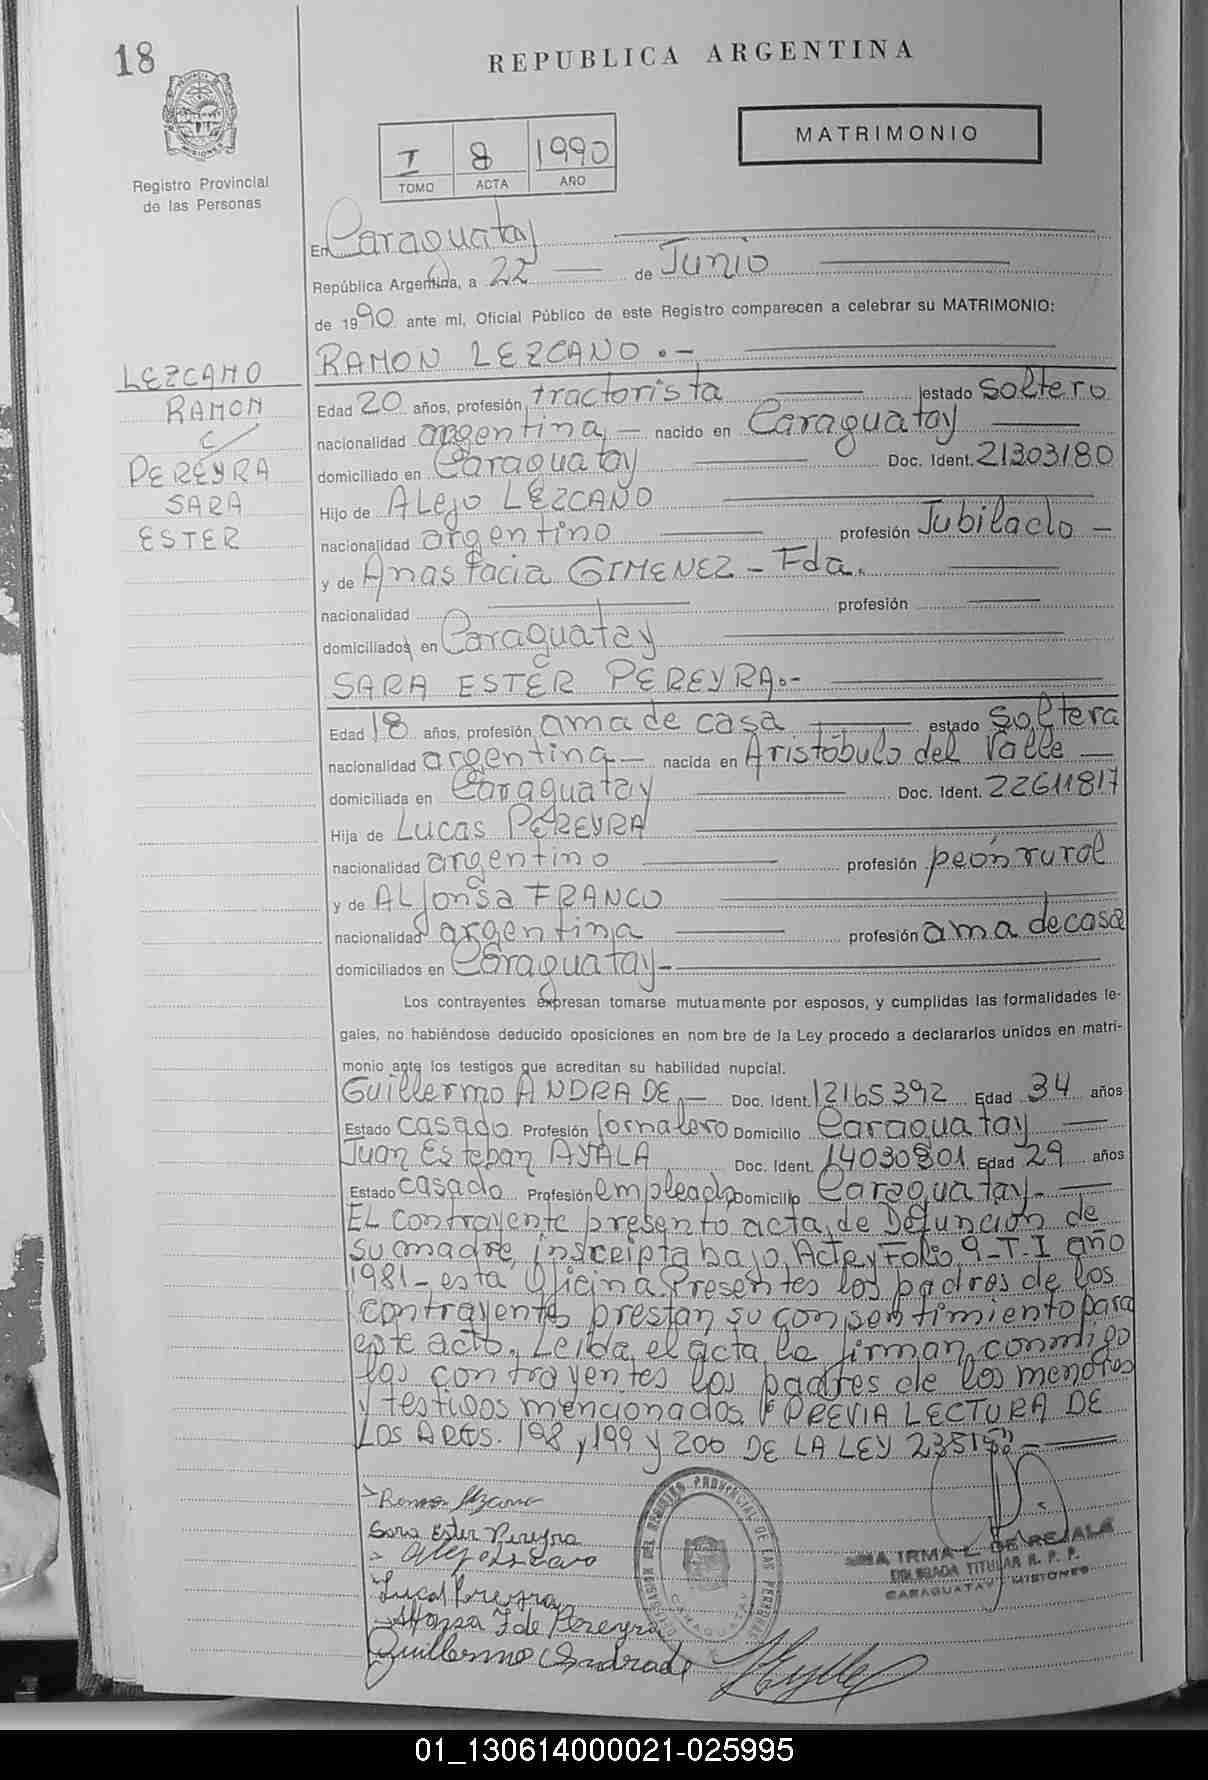 18
REPUBLICA ARGENTINA
MISIONES
Registro Provincial
de las Personas
MATRIMONIO
I 8 1990
TOMO ACTA AÑO
En Caraguatay
República Argentina, a 22 de Junio
de 1990 ante mí, Oficial Público de este Registro comparecen a celebrar su MATRIMONIO:
RAMON LEZCANO.-
LEZCANO
RAMON
c/
PEREYRA
SARA
ESTER
Edad 20 años, profesión tractorista estado soltero
nacionalidad argentina,- nacido en Caraguatay
domiciliado en Caraguatay Doc. Ident. 21303180
Hijo de ALejo LEZCANO
nacionalidad argentino profesión Jubilado-
y de Anastacia GIMENEZ-Fda.
nacionalidad profesión
domiciliados en Caraguatay
SARA ESTER PEREYRA.-
Edad 18 años, profesión ama de casa estado soltera
nacionalidad argentina- nacida en Aristóbulo del Valle-
domiciliada en Caraguatay Doc. Ident. 22611817
Hija de Lucas PEREYRA
nacionalidad argentino profesión peón rural
y de ALfonsa FRANCO
nacionalidad argentina profesión ama de casa
domiciliados en Caraguatay-
Los contrayentes expresan tomarse mutuamente por esposos, y cumplidas las formalidades le-
gales, no habiéndose deducido oposiciones en nom bre de la Ley procedo a declararlos unidos en matri-
monio ante los testigos que acreditan su habilidad nupcial.
Guillermo ANDRADE,- Doc. Ident. 12165.392 Edad 34 años
Estado casado Profesión Jornalero Domicilio Caraguatay
Juan Esteban AYALA Doc. Ident. 14030801 Edad 29 años
Estado casado Profesión empleado Domicilio Caraguatay.-
EL contrayente presento acta de Defunción de
su madre, inscripta bajo Acta y Folio 9-T.I año
1981-esta Oficina. Presentes los padres de los
contrayentes prestan su consentimiento para
este acto. Leída el acta la firman conmigo
los contrayentes los padres de los menores
y testigos mencionados. "PREVIA LECTURA DE
LOS ARTS. 198, 199 y 200 DE LA LEY 23515".-
Ramon Lezcano
Sara Ester Pereyra
Alejo Lezcano
Lucas Pereyra
Alfonsa F de Pereyra
Guillermo Andrade
DELEGACION DEL REGISTRO PROVINCIAL DE LAS PERSONAS
CARAGUATAY
IRMA L. DE REJALA
DELEGADA TITULAR R. P. P.
CARAGUATAY MISIONES
01_130614000021-025995